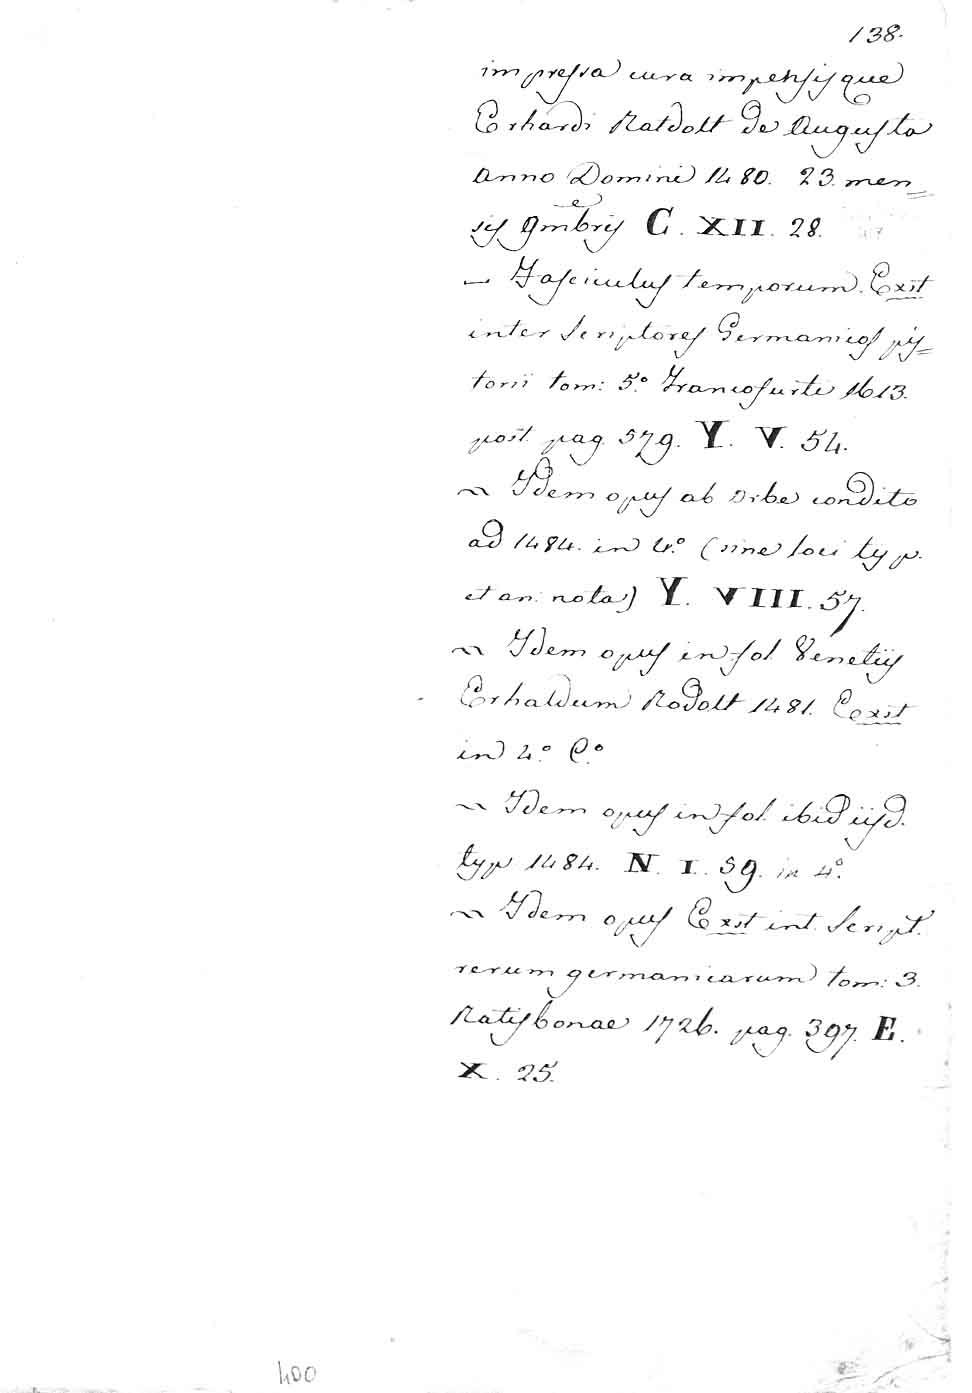 138.
impressa cura impensisque
Erhardi Ratdolt de Augusta
Anno Domini 1480. 23. men=
sis 9mbris C. XII. 28.
— Fasciculus temporum. Exst
inter Scriptores Germanicos pis=
torii tom: 5.o Francofurti 1613.
post. pag. 579. Y. V. 54.
~ Idem opus ab orbe condito
ad 1484. in 4.o (sine loci typ.
et an: nota) Y. VIII. 57.
~ Idem opus in fol. Venetiis
Erhaldum Rodolt 1481. Exst
in 4.o C.o
~ Idem opus in fol. ibid iisd.
typ. 1484. N. I. 59. in 4o.
~ Idem opus Exst int. Script.
rerum germanicarum tom: 3.
Ratisbonae 1726. pag. 397. E.
X. 25.
400